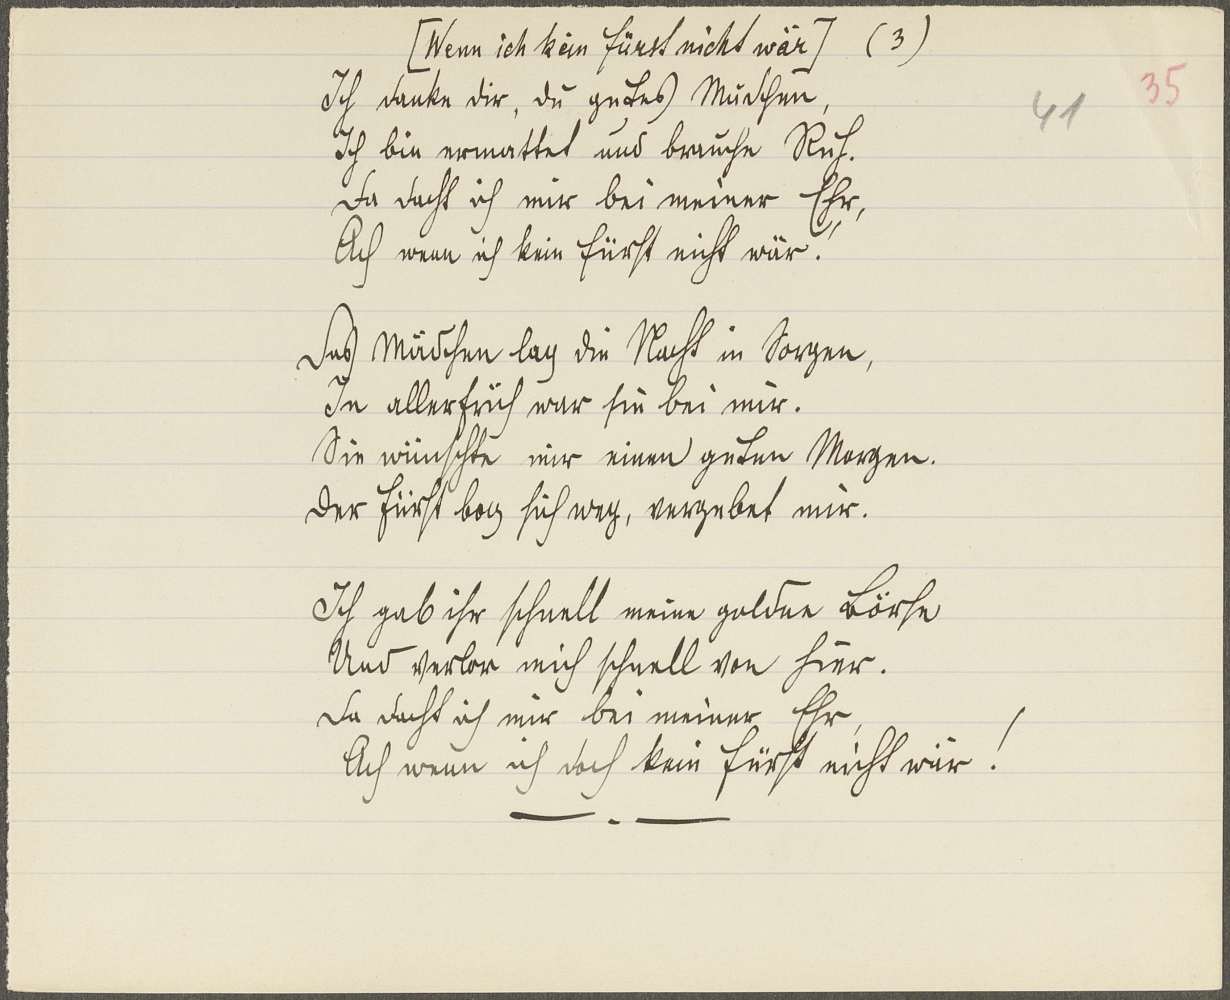 [Wenn ich kein Fürst nicht wär] (3)
35
41
Ich danke dir, du gutes Mädchen,
Ich bin ermattet und brauche Ruh.
Da dacht ich mir bei meiner Ehr,
Ach wenn ich kein Fürst nicht wär!
Das Mädchen lag die Nacht in Sorgen,
In allerfrüh war sie bei mir.
Sie wünschte mir einen guten Morgen.
Der Fürst bog sich weg, vergebet mir.
Ich gab ihr schnell meine goldne Börse
Und verlor mich schnell von hier.
Da dacht ich mir bei meiner Ehr,
Ach wenn ich doch kein Fürst nicht wär!